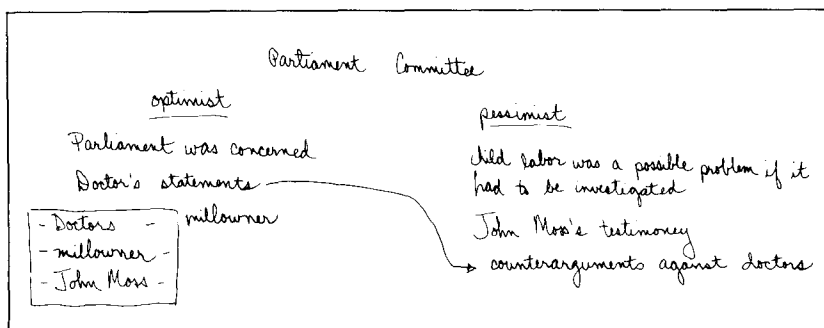 Parliament Committee
optimist
Parliament was concerned
Doctor's statements
millowner
- Doctors -
- millowner -
- John Moss -
pessimist
child labor was a possible problem if it
had to be investigated
John Moss's testimoney
counterarguments against doctors